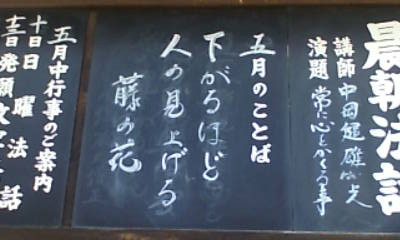 晨朝法話
講師 中田
演題 常に心にかくる事
五月のことば
下がるほど
人の見上げる
藤の花
五月中行事のご案内
十日 日曜法話